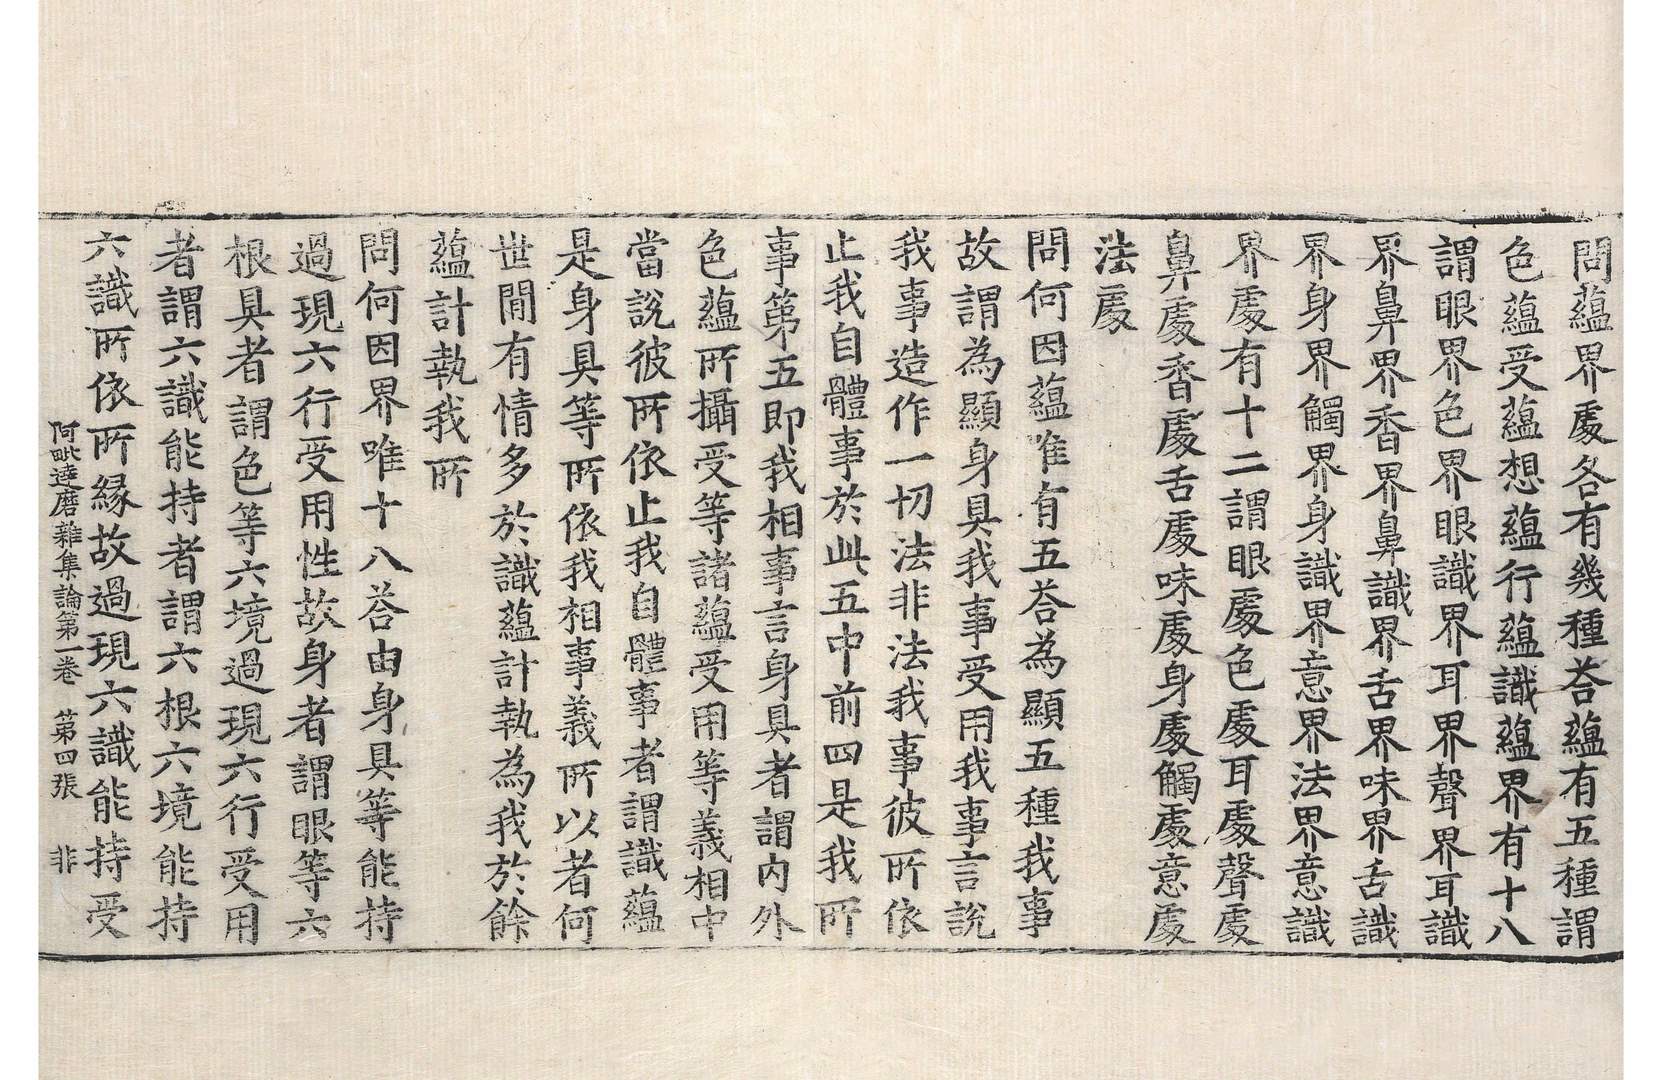 問蘊界處各有幾種荅蘊有五種謂
色蘊受蘊想蘊行蘊識蘊界有十八
謂眼界色界眼識界耳界聲界耳識
界鼻界香界鼻識界舌界味界舌識
界身界觸界身識界意界法界意識
界處有十二謂眼處色處耳處聲處
鼻處香處舌處味處身處觸處意處
法處
問何因蘊唯有五荅為顯五種我事
故謂為顯身具我事受用我事言說
我事造作一切法非法我事彼所依
止我自體事於此五中前四是我所
事第五即我相事言身具者謂內外
色蘊所攝受等諸蘊受用等義相中
當說彼所依止我自體事者謂識蘊
是身具等所依我相事義所以者何
世間有情多於識蘊計執為我於餘
蘊計執我所
問何因界唯十八荅由身具等能持
過現六行受用性故身者謂眼等六
根具者謂色等六境過現六行受用
者謂六識能持者謂六根六境能持
六識所依所緣故過現六識能持受
阿毗達磨雜集論第一卷 第四張 非